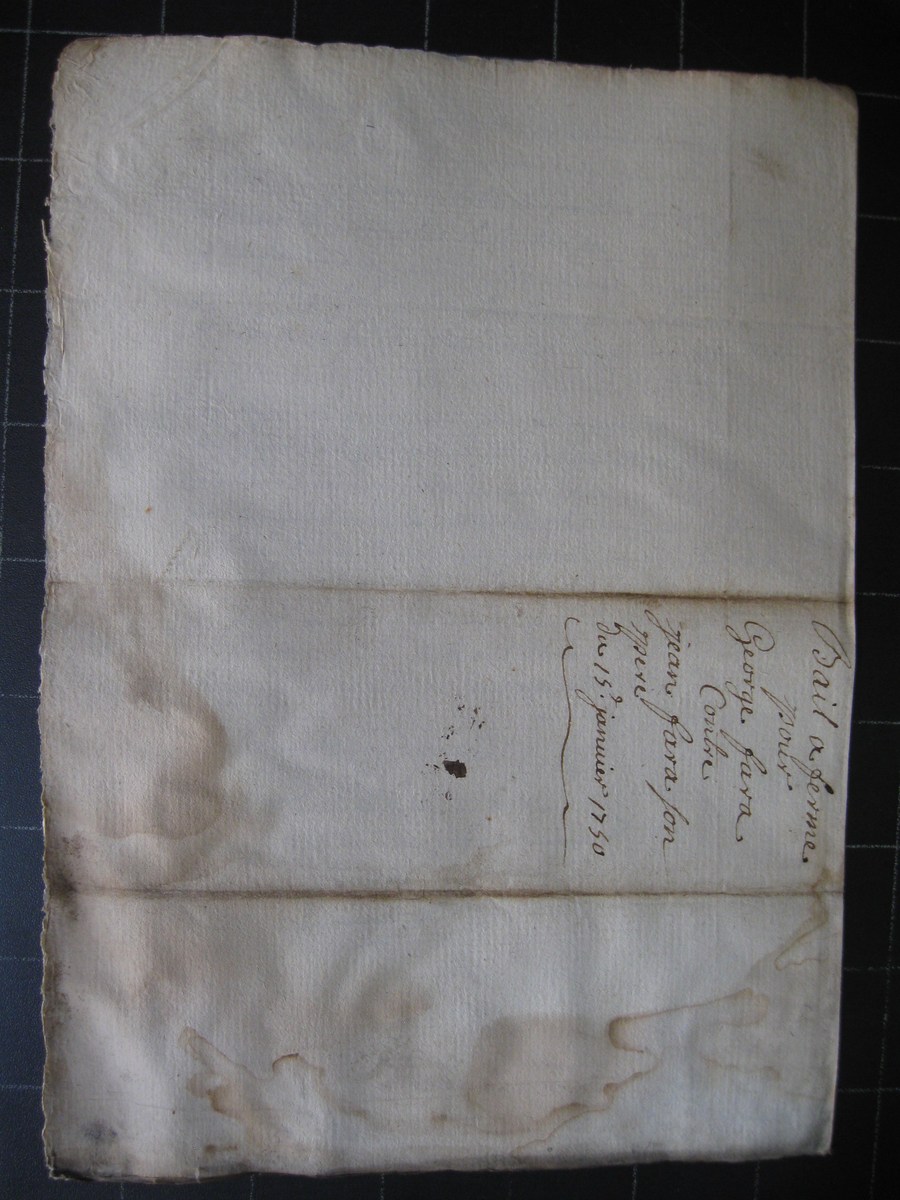 Bail a ferme
pour
George fara
Contre
jean fara son
pere
du 15.e janvier 1750